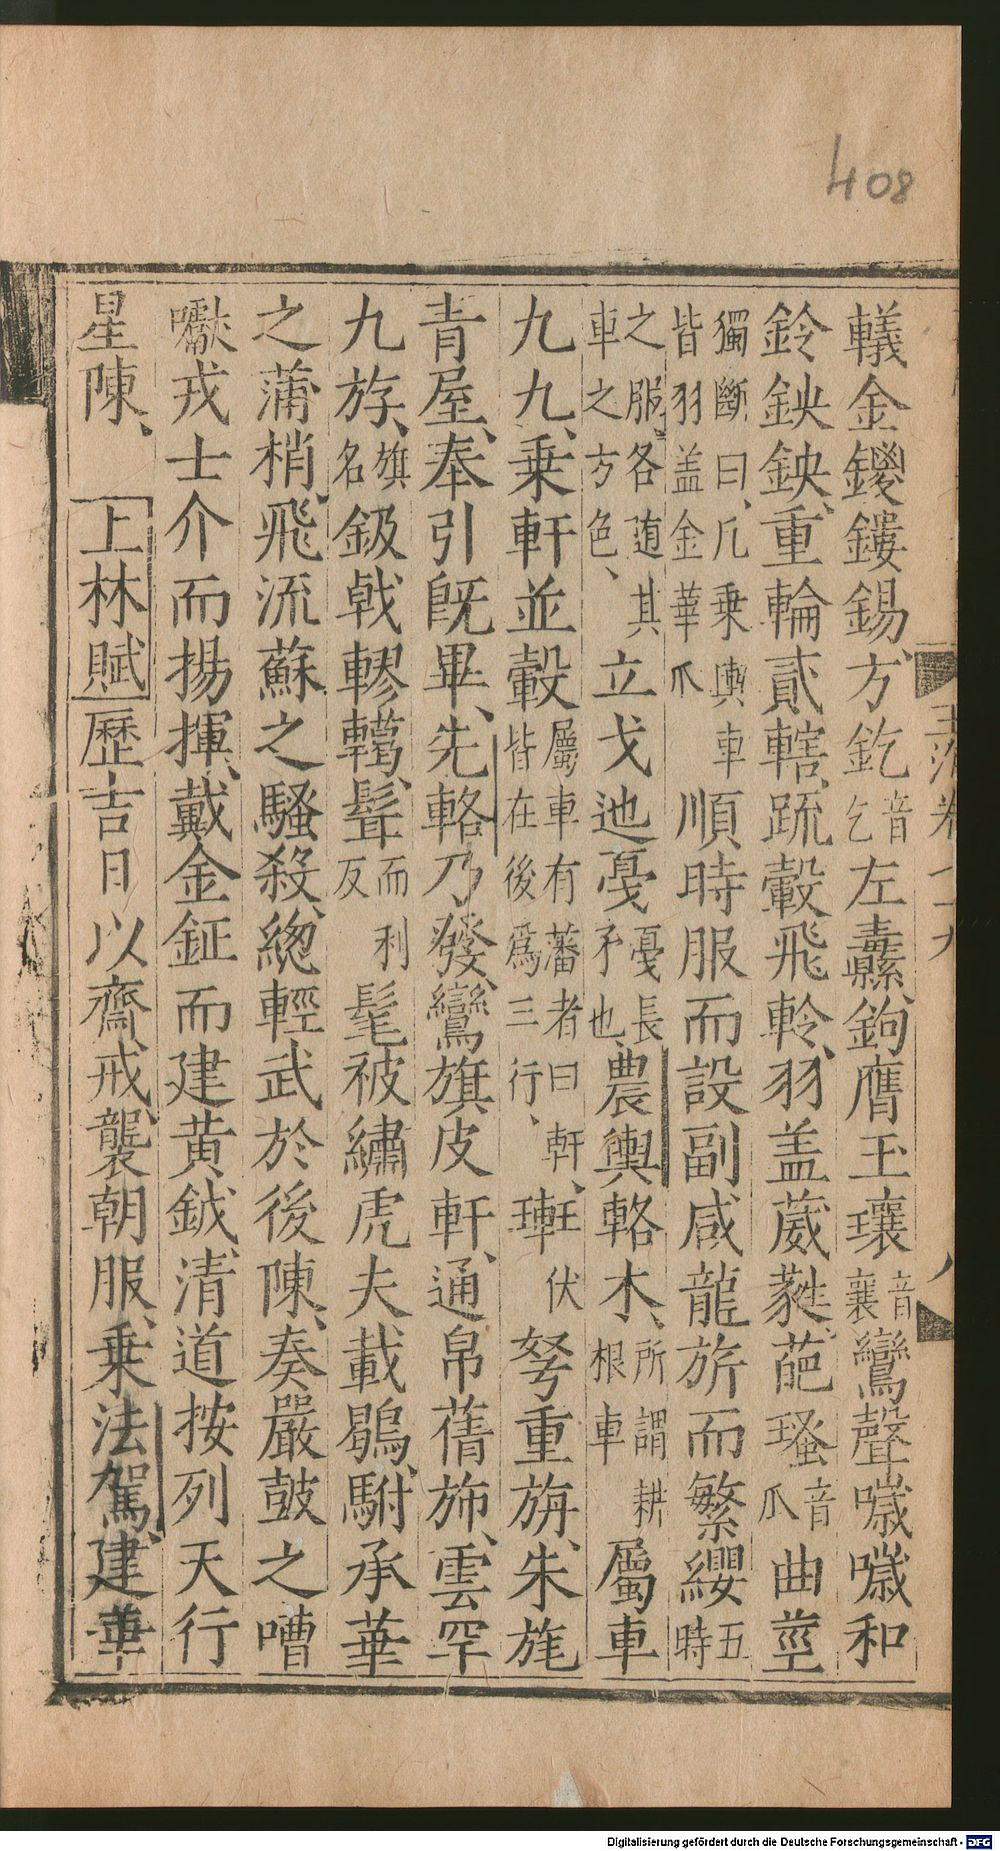 408
轙金鍐鏤錫、方釳音乞左纛、鉤膺玉瓖音襄鸞聲噦噦和
鈴鉠鉠、重輪貳轄、䟽轂飛軨、羽盖葳蕤、葩瑵音爪曲莖
獨斷曰、凢乗輿車皆羽盖金華爪順時服而設副、咸龍旂而繁纓五時
之服、各随其車之方色、立戈迆戛戛長矛也、農輿輅木、所謂耕根車屬車
九九、乗軒並轂屬車有藩者曰軒、皆在後為三行、𤦂伏弩重旃、朱旄
青屋、奉引旣畢、先輅乃發、鸞旗皮軒、通帛䋣斾、雲罕
九斿、旗名鈒戟轇輵、髶而利反髦被繡虎夫載鶡、駙承華
之蒲梢、飛流蘇之騷殺、緫輕武於後陳、奏嚴鼓之嘈
囐、戎士介而揚揮、戴金鉦而建黃鉞、清道按列天行
星陳、上林賦歷吉日以齋戒、襲朝服、乗法駕、建華
玉海卷七十九
八
Digitalisierung gefördert durch die Deutsche Forschungsgemeinschaft - DFG